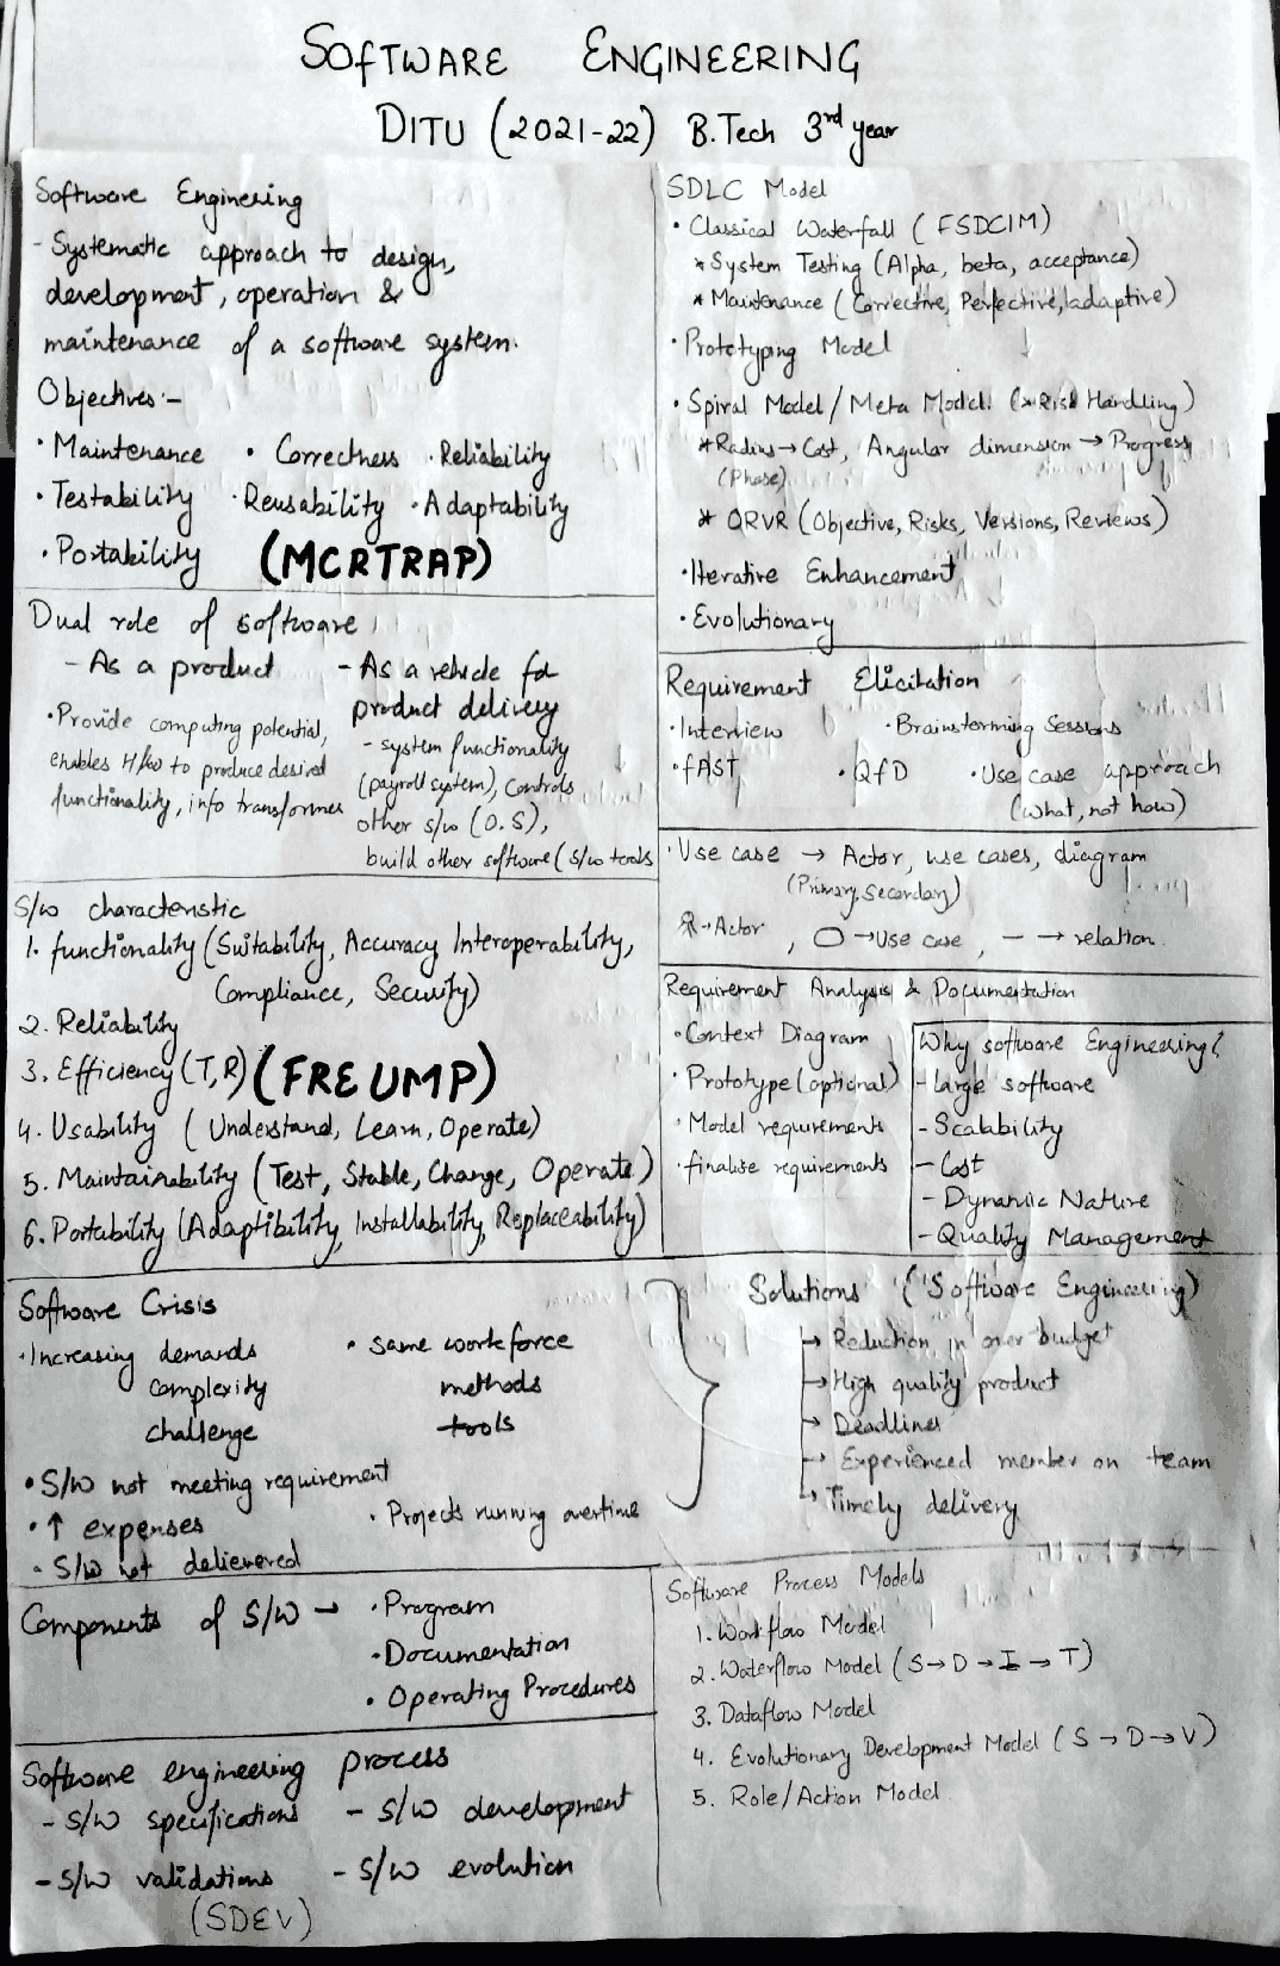 SOFTWARE ENGINEERING
DITU (2021-22) B.Tech 3rd year
Software Engineering
- Systematic approach to design,
development, operation &
maintenance of a software system.
Objectives:-
• Maintenance • Correctness • Reliability
• Testability • Reusability • Adaptability
• Portability (MCRTRAP)
Dual role of software
- As a product
• Provide computing potential,
enables H/w to produce desired
functionality, info transformer
- As a vehicle for
product delivery
- system functionality
(payroll system), controls
other s/w (O.S),
build other software (s/w tools
S/w characteristic
1. functionality (Suitability, Accuracy Interoperability,
Compliance, Security)
2. Reliability
3. Efficiency (T,R) (FREUMP)
4. Usability (Understand, Learn, Operate)
5. Maintainability (Test, Stable, Change, Operate)
6. Portability (Adaptibility, Installability, Replaceability)
Software Crisis
• Increasing demands
complexity
challenge
• same workforce
methods
tools
• S/W not meeting requirement
• ↑ expenses • Projects running overtime
• S/W not delievered
Components of S/W - • Program
• Documentation
• Operating Procedures
Software engineering process
- S/W specifications - S/W development
- S/W validations - S/W evolution
(SDEV)
SDLC Model
• Classical Waterfall (FSDCIM)
* System Testing (Alpha, beta, acceptance)
* Maintenance (Corrective, Perfective, adaptive)
• Prototyping Model
• Spiral Model / Meta Model. (* Risk Handling)
* Radius → Cost, Angular dimension → Progress
(Phase)
* ORVR (Objective, Risks, Versions, Reviews)
• Iterative Enhancement
• Evolutionary
Requirement Elicitation
• Interview • Brainstorming Sessions
• fAST • QfD • Use case approach
(what, not how)
• Use case → Actor, use cases, diagram
(Primary, Secondary)
→ Actor, → Use case, — → relation.
Requirement Analysis & Documentation
• Context Diagram
• Prototype (optional)
• Model requirements
• finalise requirements
Why software Engineering?
- large software
- Scalability
- Cost
- Dynamic Nature
- Quality Management
Solutions ('Software Engineering)
→ Reduction in over budget
→ High quality product
→ Deadlines
→ Experienced member on team
→ Timely delivery
Software Process Models
1. Workflow Model
2. Waterflow Model (S → D → I → T)
3. Dataflow Model
4. Evolutionary Development Model (S → D → V)
5. Role/Action Model